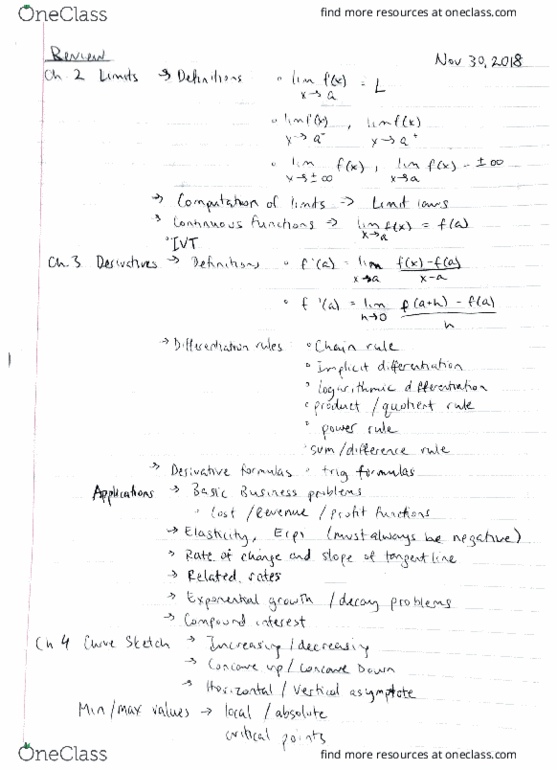 OneClass
find more resources at oneclass.com
Review
Nov 30, 2018
Ch. 2 Limits → Definitions • lim x→a f(x) = L
• lim f(x) x→a⁻ , lim f(x) x→a⁺
• lim x→±∞ f(x) , lim x→a f(x) - ±∞
→ Computation of limits → Limit laws
→ Continuous functions → lim x→a f(x) = f(a)
• IVT
Ch. 3 Derivatives → Definitions • f'(a) = lim x→a f(x)-f(a) / x-a
• f'(a) = lim h→0 f(a+h) - f(a) / h
→ Differentiation rules • Chain rule
• Implicit differentiation
• logarithmic differentiation
• product / quotient rule
• power rule
• sum/difference rule
→ Derivative formulas • trig formulas
Applications → Basic Business problems
• Cost / Revenue / Profit functions
→ Elasticity, E(p) (must always be negative)
→ Rate of change and slope of tangent line
→ Related rates
→ Exponential growth / decay problems
→ Compound interest
Ch 4 Curve Sketch → Increasing / decreasing
→ Concave up / Concave Down
→ Horizontal / Vertical asymptote
Min/max values → local / absolute
critical points
OneClass
find more resources at oneclass.com